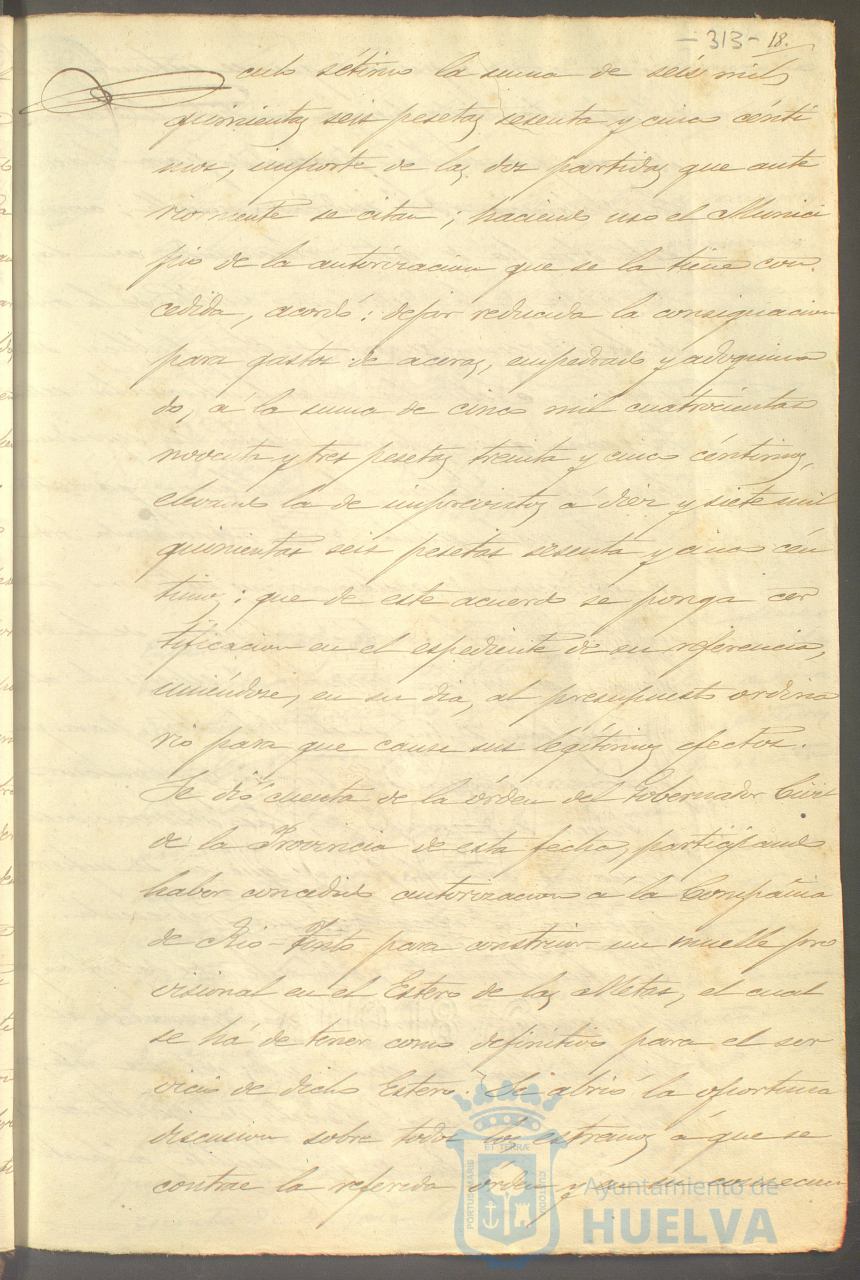 - 313 - 18.
culo sétimo la suma de seis mil
quinientas seis pesetas sesenta y cinco cénti
mos, importe de las dos partidas que ante
riormente se citan; haciendo uso el Munici
pio de la autorizacion que se la tiene con-
cedida, acordó: dejar reducida la consignacion
para gastos de aceras, empedrado y adoquina
do, á la suma de cinco mil cuatrocientas
noventa y tres pesetas treinta y cinco céntimos,
elevando la de imprevistos á diez y siete mil
quinientas seis pesetas sesenta y cinco cén
timos: que de este acuerdo se ponga cer
tificacion en el espediente de su referencia,
uniéndose, en su dia, al presupuesto ordina
rio para que cause sus legítimos efectos.
Se dió cuenta de la órden del Gobernador Civil
de la Provincia de esta fecha, participando
haber concedido autorizacion á la Compañia
de Rio-Tinto para construir un muelle pro
visional en el Estero de las Metas, el cual
se há de tener como definitivo para el ser
vicio de dicho Estero. Se abrió la oportuna
discusion sobre todos los estremos á que se
contrae la referida órden y en su consecuen
PORTUS MARIS ET TERRÆ CUSTODIA
Ayuntamiento de
HUELVA